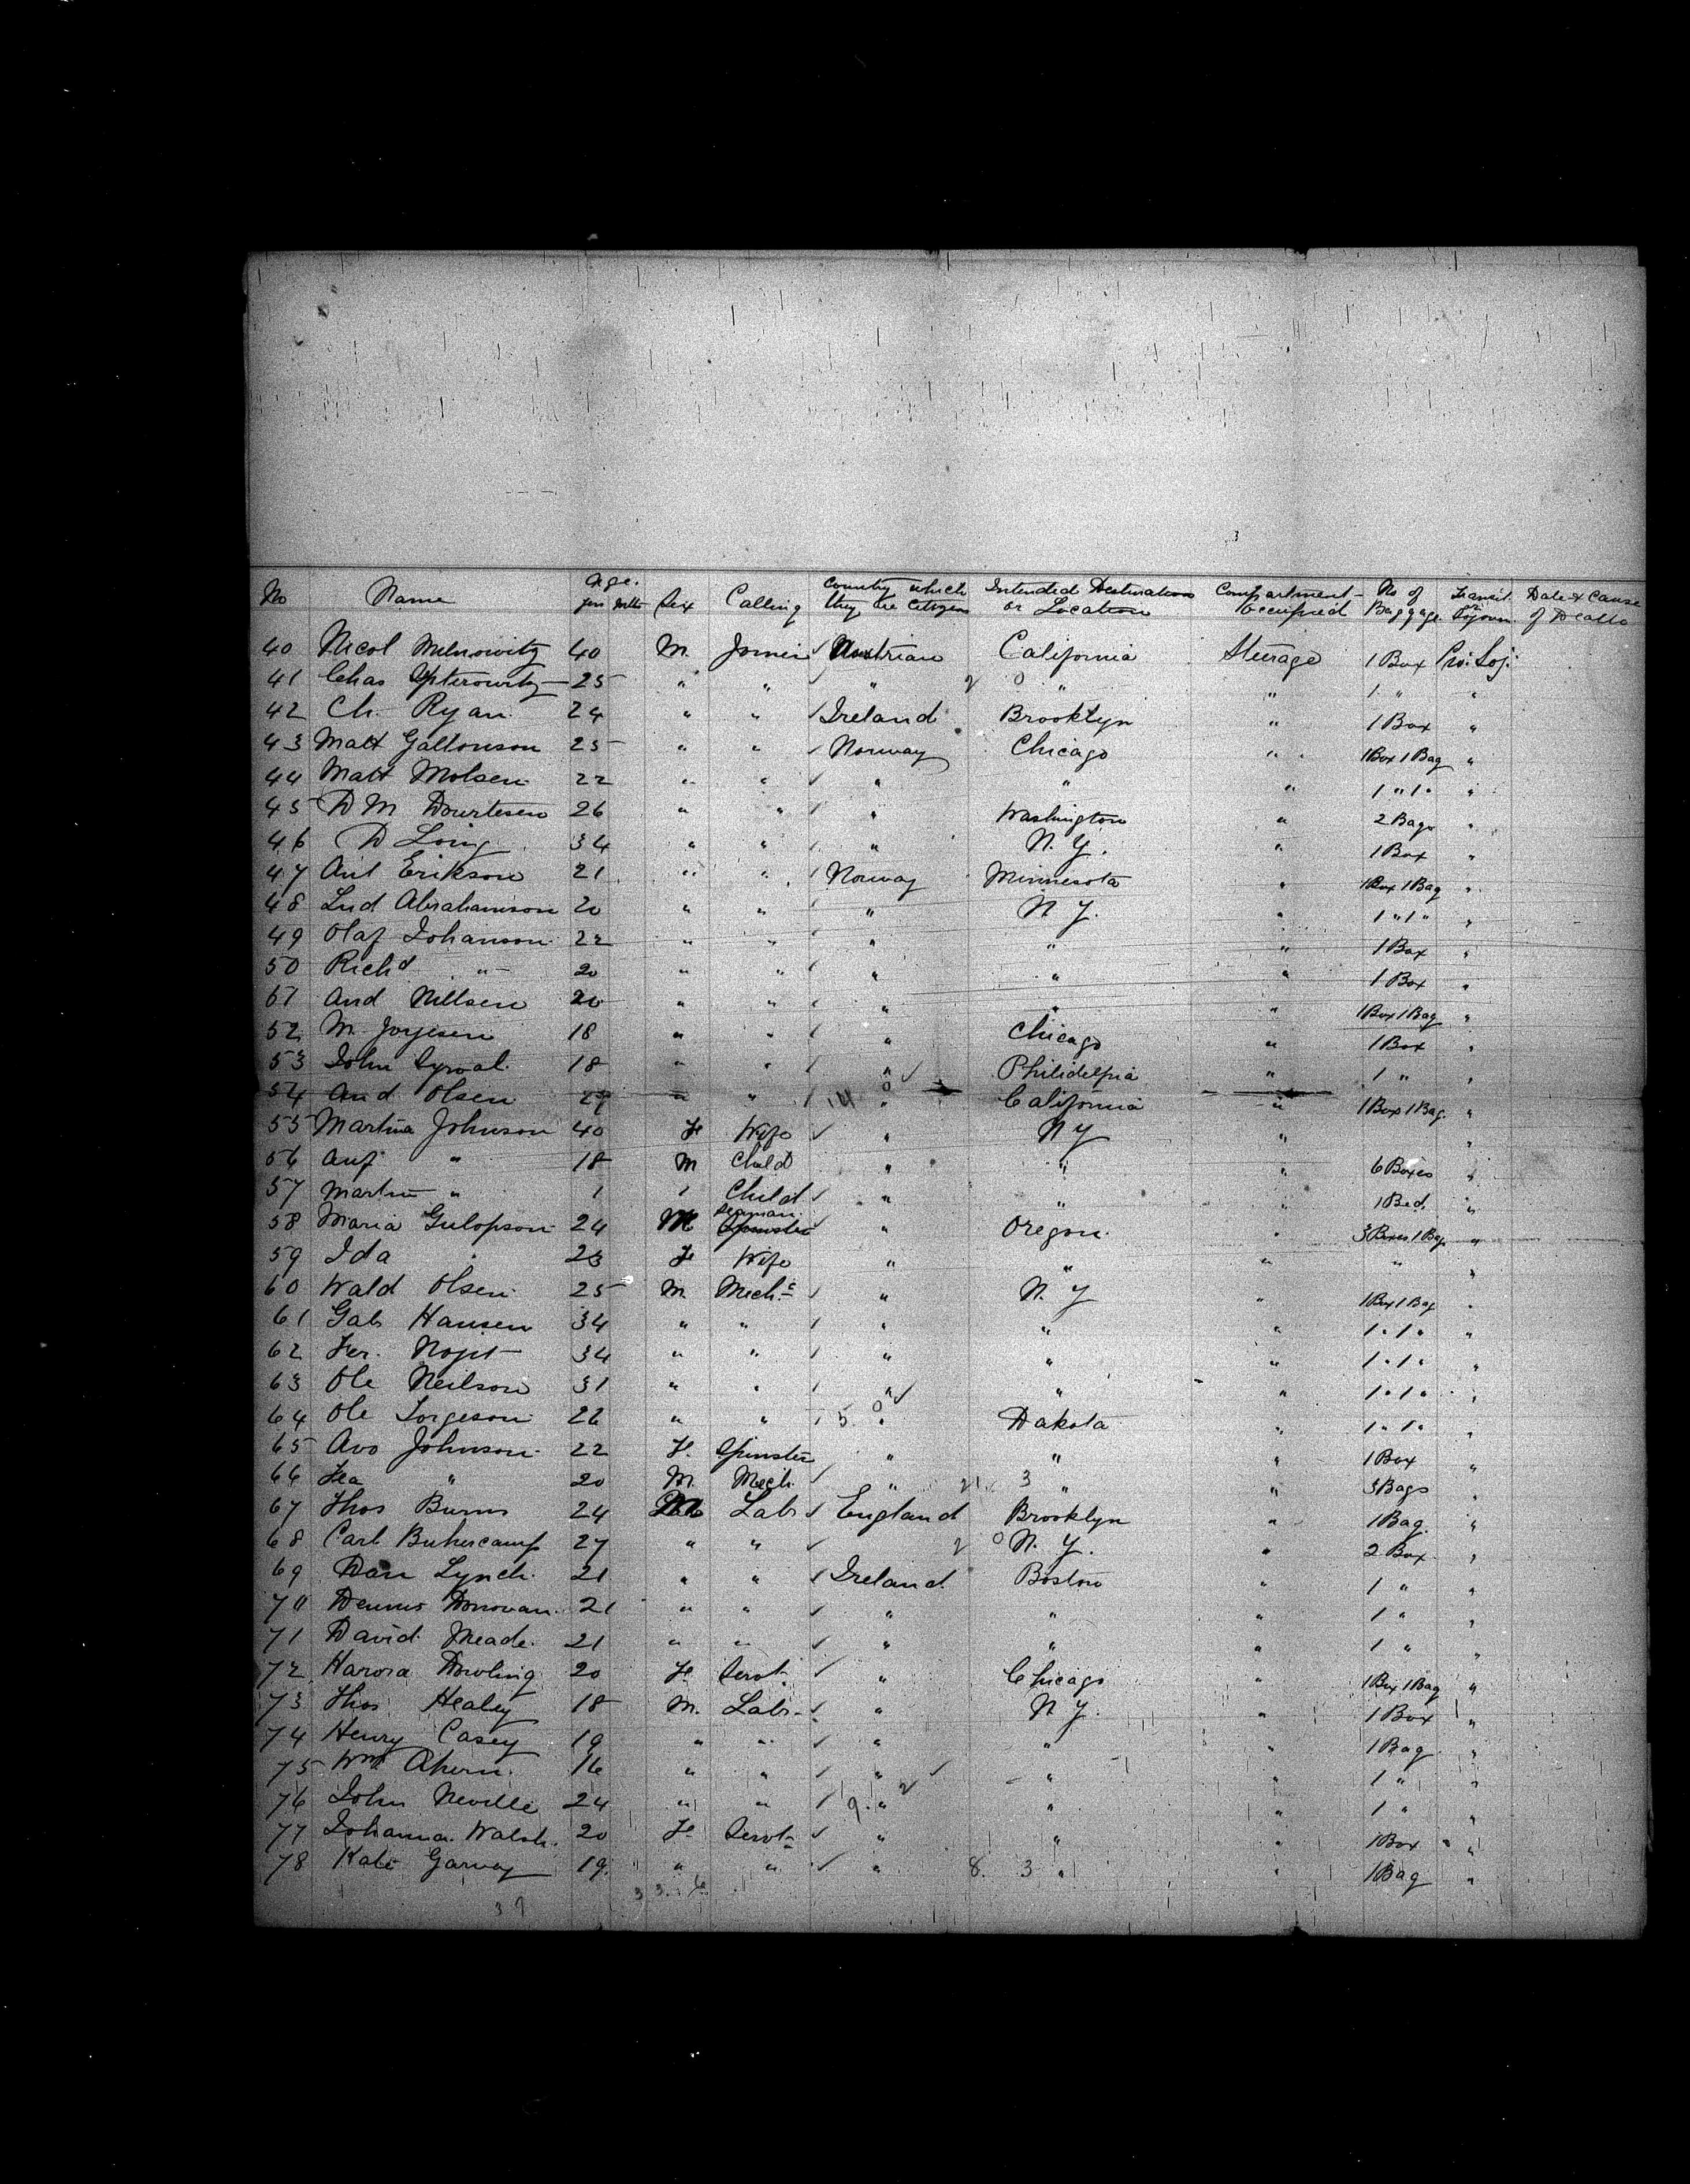 No Name Age. Yrs Mths Sex Calling Country which they are Citizens Intended Destination or Location Compartment occupied No of Baggage Transit or Sojourn Date & Cause of Death
40 Nicol Milnowitz 40 M. Joiner Austrian California Steerage 1 Box Pro: Soj:
41 Chas 25 " " " " " 1 " "
42 Ch. Ryan. 24 " " Ireland Brooklyn " 1 Box "
43 Matt Gallonson 25 " " Norway Chicago " 1 Box 1 Bag "
44 Matt Molsen 22 " " " " " 1 " 1 " "
45 D M 26 " " " Washington " 2 Bags "
46 D Long 34 " " " N. Y. " 1 Box "
47 Erikson 21 " " Norway Minnesota " 1 Box 1 Bag "
48 Lud Abrahamson 20 " " " N Y. " 1 " 1 " "
49 Olaf Johanson 22 " " " " " 1 Box "
50 Richd " 20 " " " " " 1 Box "
51 And Nillsen 20 " " " " " 1 Box 1 Bag "
52 M. Jorgesen 18 " " " Chicago " 1 Box "
53 John 18 " " " Philidelpia " 1 " "
54 And Olsen 27 " " 14 0 " California " 1 Box 1 Bag "
55 Martina Johnson 40 Fe Wife " N Y " "
56 " 18 M Child " " " 6 Boxes "
57 Martin " 1 " Child " " " 1 Bed. "
58 Maria Gulopson 24 M Seaman Spinster " Oregon. " 3 Boxes 1 Bag "
59 Ida " 23 Fe Wife " " " " "
60 Wald Olsen 25 M. Mechc " N. Y " 1 Box 1 Bag "
61 Gab Hansen 34 " " " " " 1 " 1 " "
62 Fer. 34 " " " " " 1 " 1 " "
63 Ole Neilson 31 " " " " " 1 " 1 " "
64 Ole Torgeson 26 " " 5 0 " Dakota " 1 " 1 " "
65 Avo Johnson 22 Fe. Spinster " " " 1 Box "
66 " 20 M. Mech. " 21 3 " " 3 Bags "
67 Thos Burns 24 M Labr England Brooklyn " 1 Bag. "
68 Carl Buhercamp 27 " " 2 0 N. Y. " 2 Box "
69 Dan Lynch. 21 " " Ireland Boston " 1 " "
70 Dennis Donovan. 21 " " " " " 1 " "
71 David Meade. 21 " " " " " 1 " "
72 Harora Dowling 20 Fe Servt " Chicago " 1 Box 1 Bag "
73 Thos Healey 18 M. Labr " N Y. " 1 Box "
74 Henry Casey 19 " " " " " 1 Bag "
75 Wm Ahern. 16 " " " " " 1 " "
76 John Neville 24 " " 9 2 " " " 1 " "
77 Johanna Walsh. 20 Fe Servt " " " 1 Box "
78 Kate Garvey 19. " " " 8. 3 " " 1 Bag "
33. 6
39